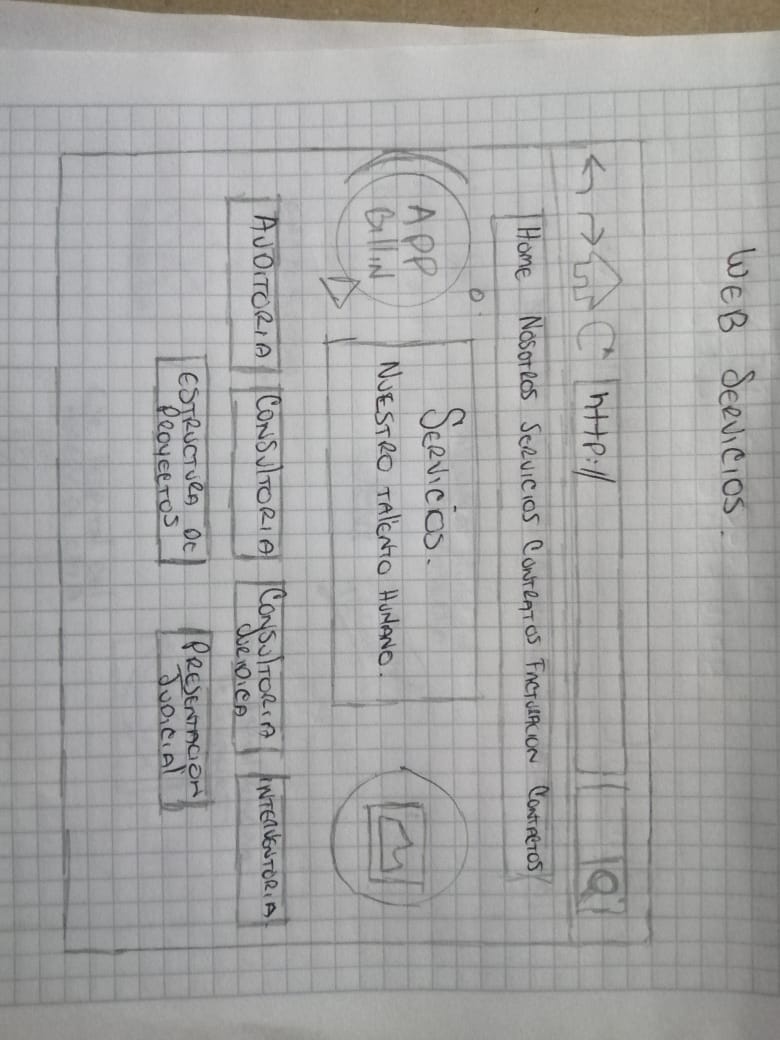 WEB SERVICIOS.
http://
HOME NOSOTROS SERVICIOS CONTRATOS FACTURACION CONTACTOS
APP
BillIN
SERVICIOS.
NUESTRO TALENTO HUMANO.
AUDITORIA
CONSULTORIA
CONSULTORIA
JURIDICA
INTERVENTORIA.
ESTRUCTURA DE
PROYECTOS
PRESENTACION
JUDICIAL